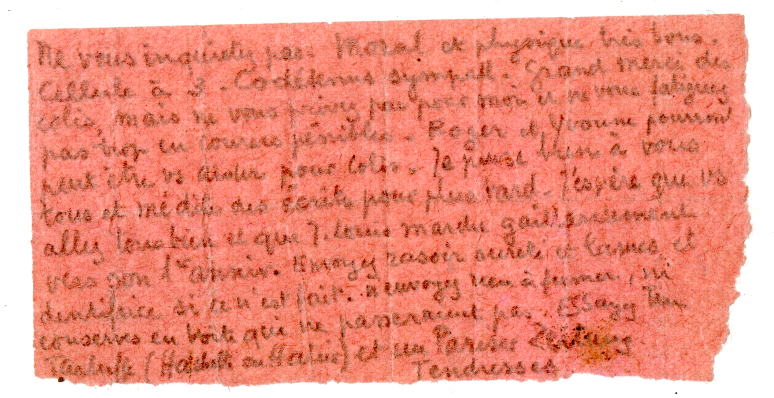 Ne vous inquietez pas. Moral et physique très bons.
Cellule à 3. Codétenus sympath. Grand merci des
colis, mais ne vous privez pas pour moi et ne vous fatiguez
pas trop en courses pénibles. Roger et Yvonne pourront
peut être vs aider pour colis. Je pense bien à vous
tous et médite des écrits pour plus tard. J'espère que vs
allez tous bien et que J. Louis marche gaillardement
vers son 1er anniv. Envoyez rasoir et lames et
dentifrice si ce n'est fait. N'envoyez rien à fumer, ni
conserves en boîte qui ne passeraient pas. Essayez
Tartuffe (Hachette ou Hatier) et un Pariser Zeitung
Tendresses